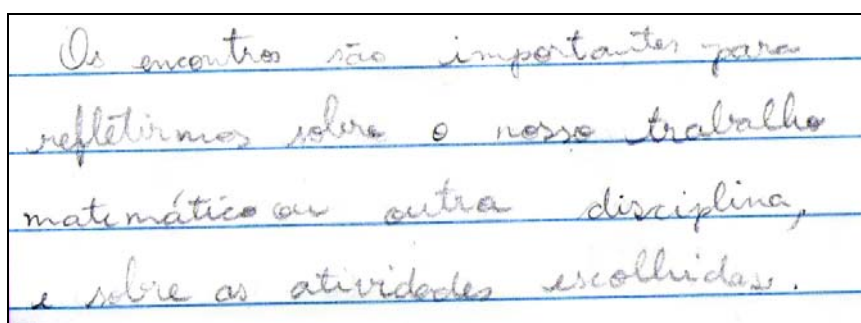 Os encontros são importantes para
refletirmos sobre o nosso trabalho
matemático ou outra disciplina,
e sobre as atividades escolhidas.